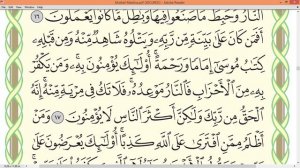 Mushaf Madinah.pdf (SECURED) - Adobe Reader
ٱلنَّارُ وَحَبِطَ مَا صَنَعُوا۟ فِيهَا وَبَـٰطِلٌ مَّا كَانُوا۟ يَعْمَلُونَ ١٦
أَفَمَن كَانَ عَلَىٰ بَيِّنَةٍ مِّن رَّبِّهِۦ وَيَتْلُوهُ شَاهِدٌ مِّنْهُ وَمِن قَبْلِهِۦ
كِتَـٰبُ مُوسَىٰٓ إِمَامًا وَرَحْمَةً ۚ أُو۟لَـٰٓئِكَ يُؤْمِنُونَ بِهِۦ ۚ وَمَن يَكْفُرْ
بِهِۦ مِنَ ٱلْأَحْزَابِ فَٱلنَّارُ مَوْعِدُهُۥ ۚ فَلَا تَكُ فِى مِرْيَةٍ مِّنْهُ ۚ إِنَّهُ
ٱلْحَقُّ مِن رَّبِّكَ وَلَـٰكِنَّ أَكْثَرَ ٱلنَّاسِ لَا يُؤْمِنُونَ ١٧ وَمَنْ
أَظْلَمُ مِمَّنِ ٱفْتَرَىٰ عَلَى ٱللَّهِ كَذِبًا ۚ أُو۟لَـٰٓئِكَ يُعْرَضُونَ عَلَىٰ